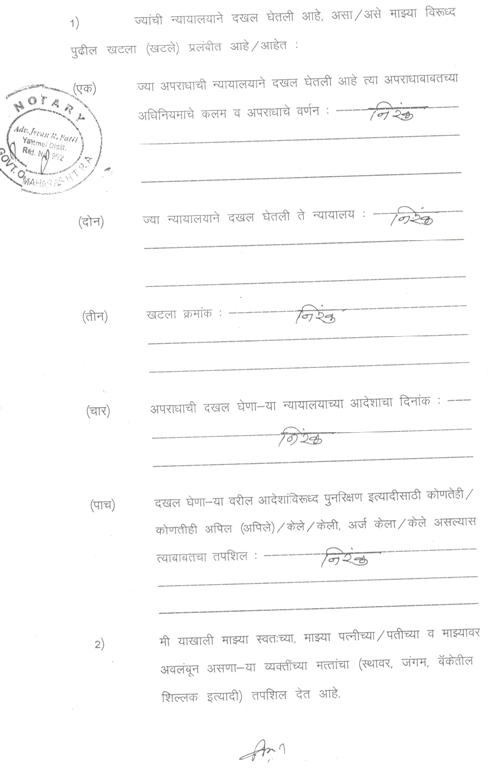 1) ज्यांची न्यायालयाने दखल घेतली आहे, असा/असे माझ्या विरूध्द
पुढील खटला (खटले) प्रलंबीत आहे/आहेत :
(एक) ज्या अपराधाची न्यायालयाने दखल घेतली आहे त्या अपराधाबाबतच्या
अधिनियमाचे कलम व अपराधाचे वर्णन : निरंक
NOTARY
Adv. Jevan R. Patil
Yavtmal Distt.
GOVT. OF MAHARASHTRA
(दोन) ज्या न्यायालयाने दखल घेतली ते न्यायालय : निरंक
(तीन) खटला क्रमांक : निरंक
(चार) अपराधाची दखल घेणा-या न्यायालयाच्या आदेशाचा दिनांक :
निरंक
(पाच) दखल घेणा-या वरील आदेशांविरूध्द पुनरिक्षण इत्यादीसाठी कोणतेही/
कोणतीही अपिल (अपिले)/केले/केली, अर्ज केला/केले असल्यास
त्याबाबतचा तपशिल : निरंक
2) मी याखाली माझ्या स्वतःच्या, माझ्या पत्नीच्या/पतीच्या व माझ्यावर
अवलंबून असणा-या व्यक्तींच्या मत्तांचा (स्थावर, जंगम, बॅकेतील
शिल्लक इत्यादी) तपशिल देत आहे.